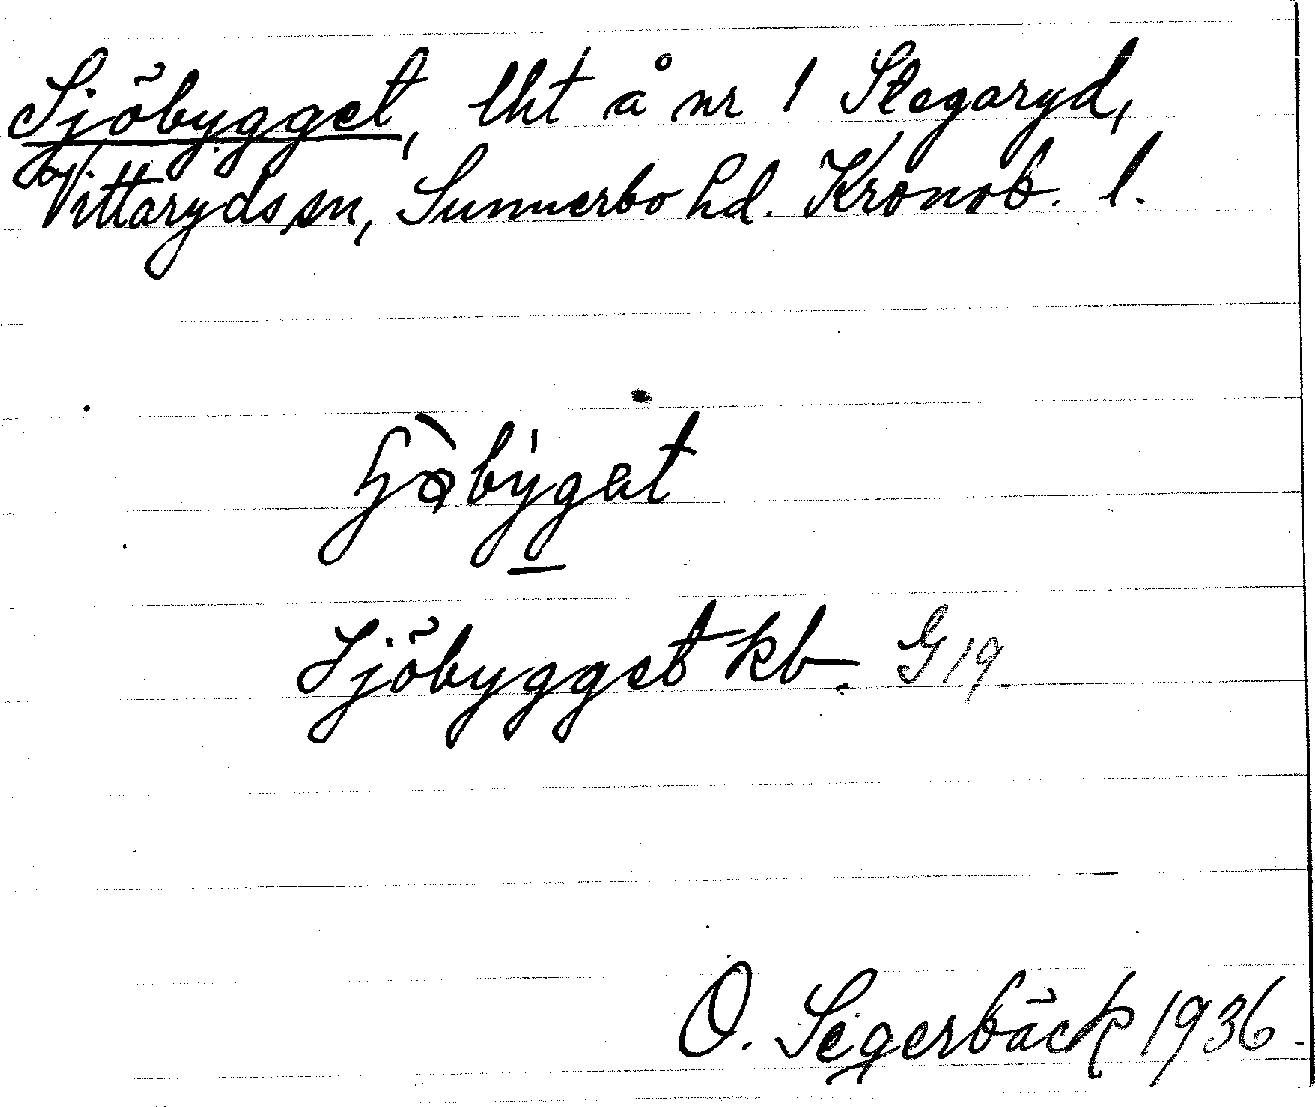 Sjöbygget, lht å nr 1 Stegaryd,
Vittaryds sn, Sunnerbo hd. Kronob. l.
Sjöbygget kb. G 19.
O. Segerbäck 1936.